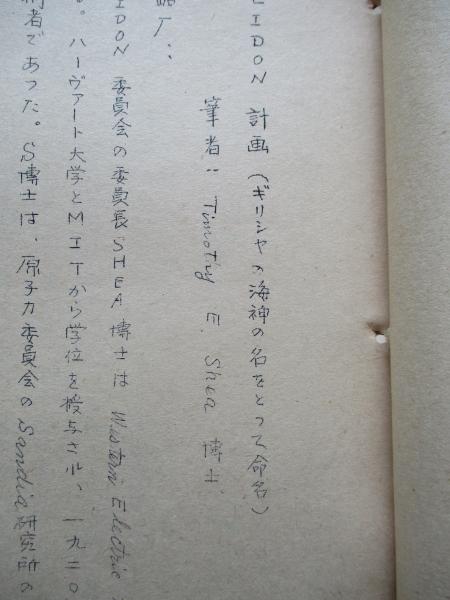 EIDON 計画 (ギリシャの海神の名をとって命名)
筆者: Timothy E. Shea 博士
略歴:
IDON 委員会の委員長 SHEA 博士は Western Electric
。ハーヴァート大学とMITから学位を授与され、一九二〇
者であった。S博士は、原子力委員会の Sandia 研究所の